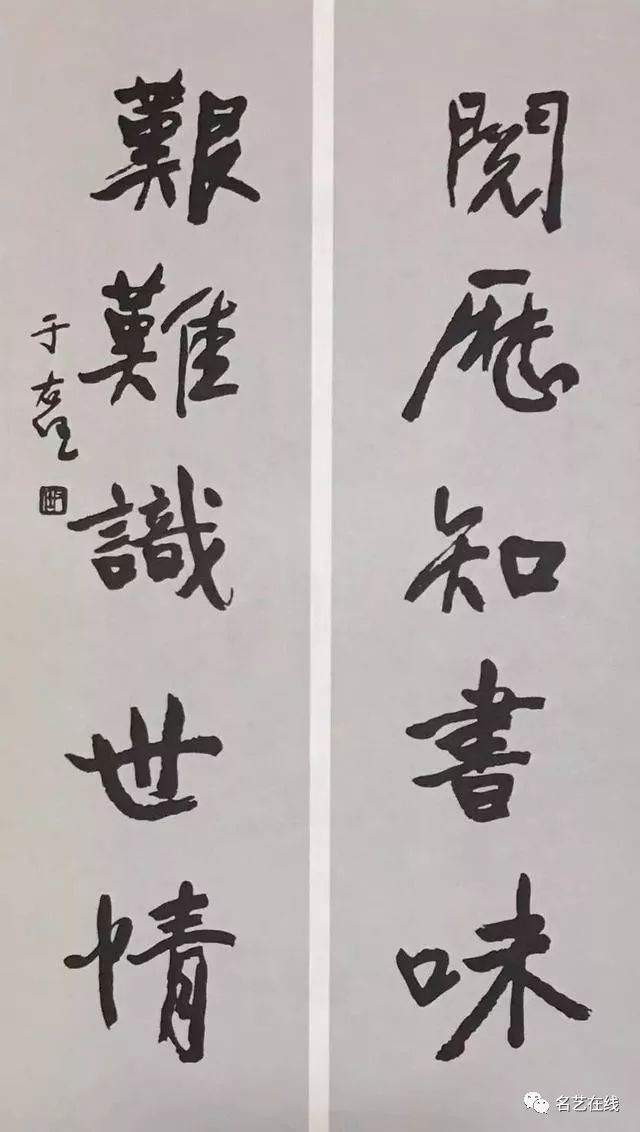 閱歷知書味
艱難識世情
于右任
名艺在线